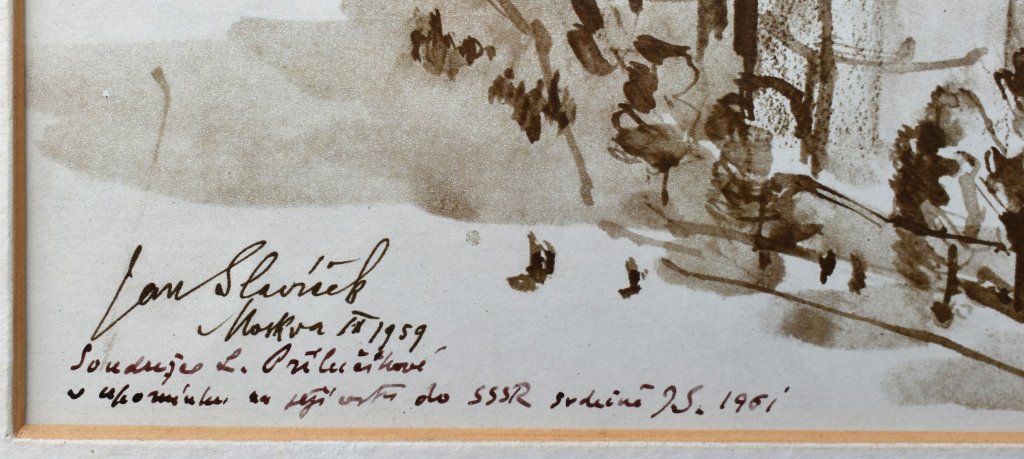 Jan Slavíček
Moskva IX 1959
Soudružce L. Přílučíkové
v upomínku na její cestu do SSSR srdečně J.S. 1961